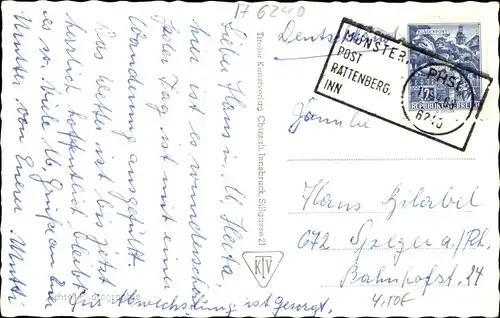 A 6240
Deutschland
MÜNSTER,
POST
RATTENBERG,
INN
6210
REPUBLIK ÖSTERREICH
Familie
Hans Gilabel
672 Speyer a/Rh.
Bahnhofst. 24
4,50€
Tiroler Kunstverlag Chizzali, Innsbruck, Sillgasse 21
KTV
Liebe Hans u. Herta,
hier ist es wunderschön
Jeder Tag ist mit einer
Wanderung ausgefüllt.
Das Wetter ist bis jetzt
herrlich hoffentlich bleibt
es so. Viele lb. Grüße an Eure
Mutter von Eurer Mutti
Für Abwechslung ist gesorgt.